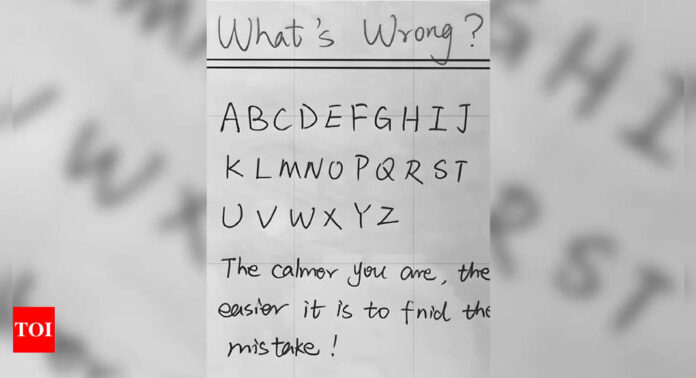 What's Wrong?
A B C D E F G H I J
K L M N O P Q R S T
U V W X Y Z
The calmer you are, the
easier it is to fnid the
mistake!
TOI